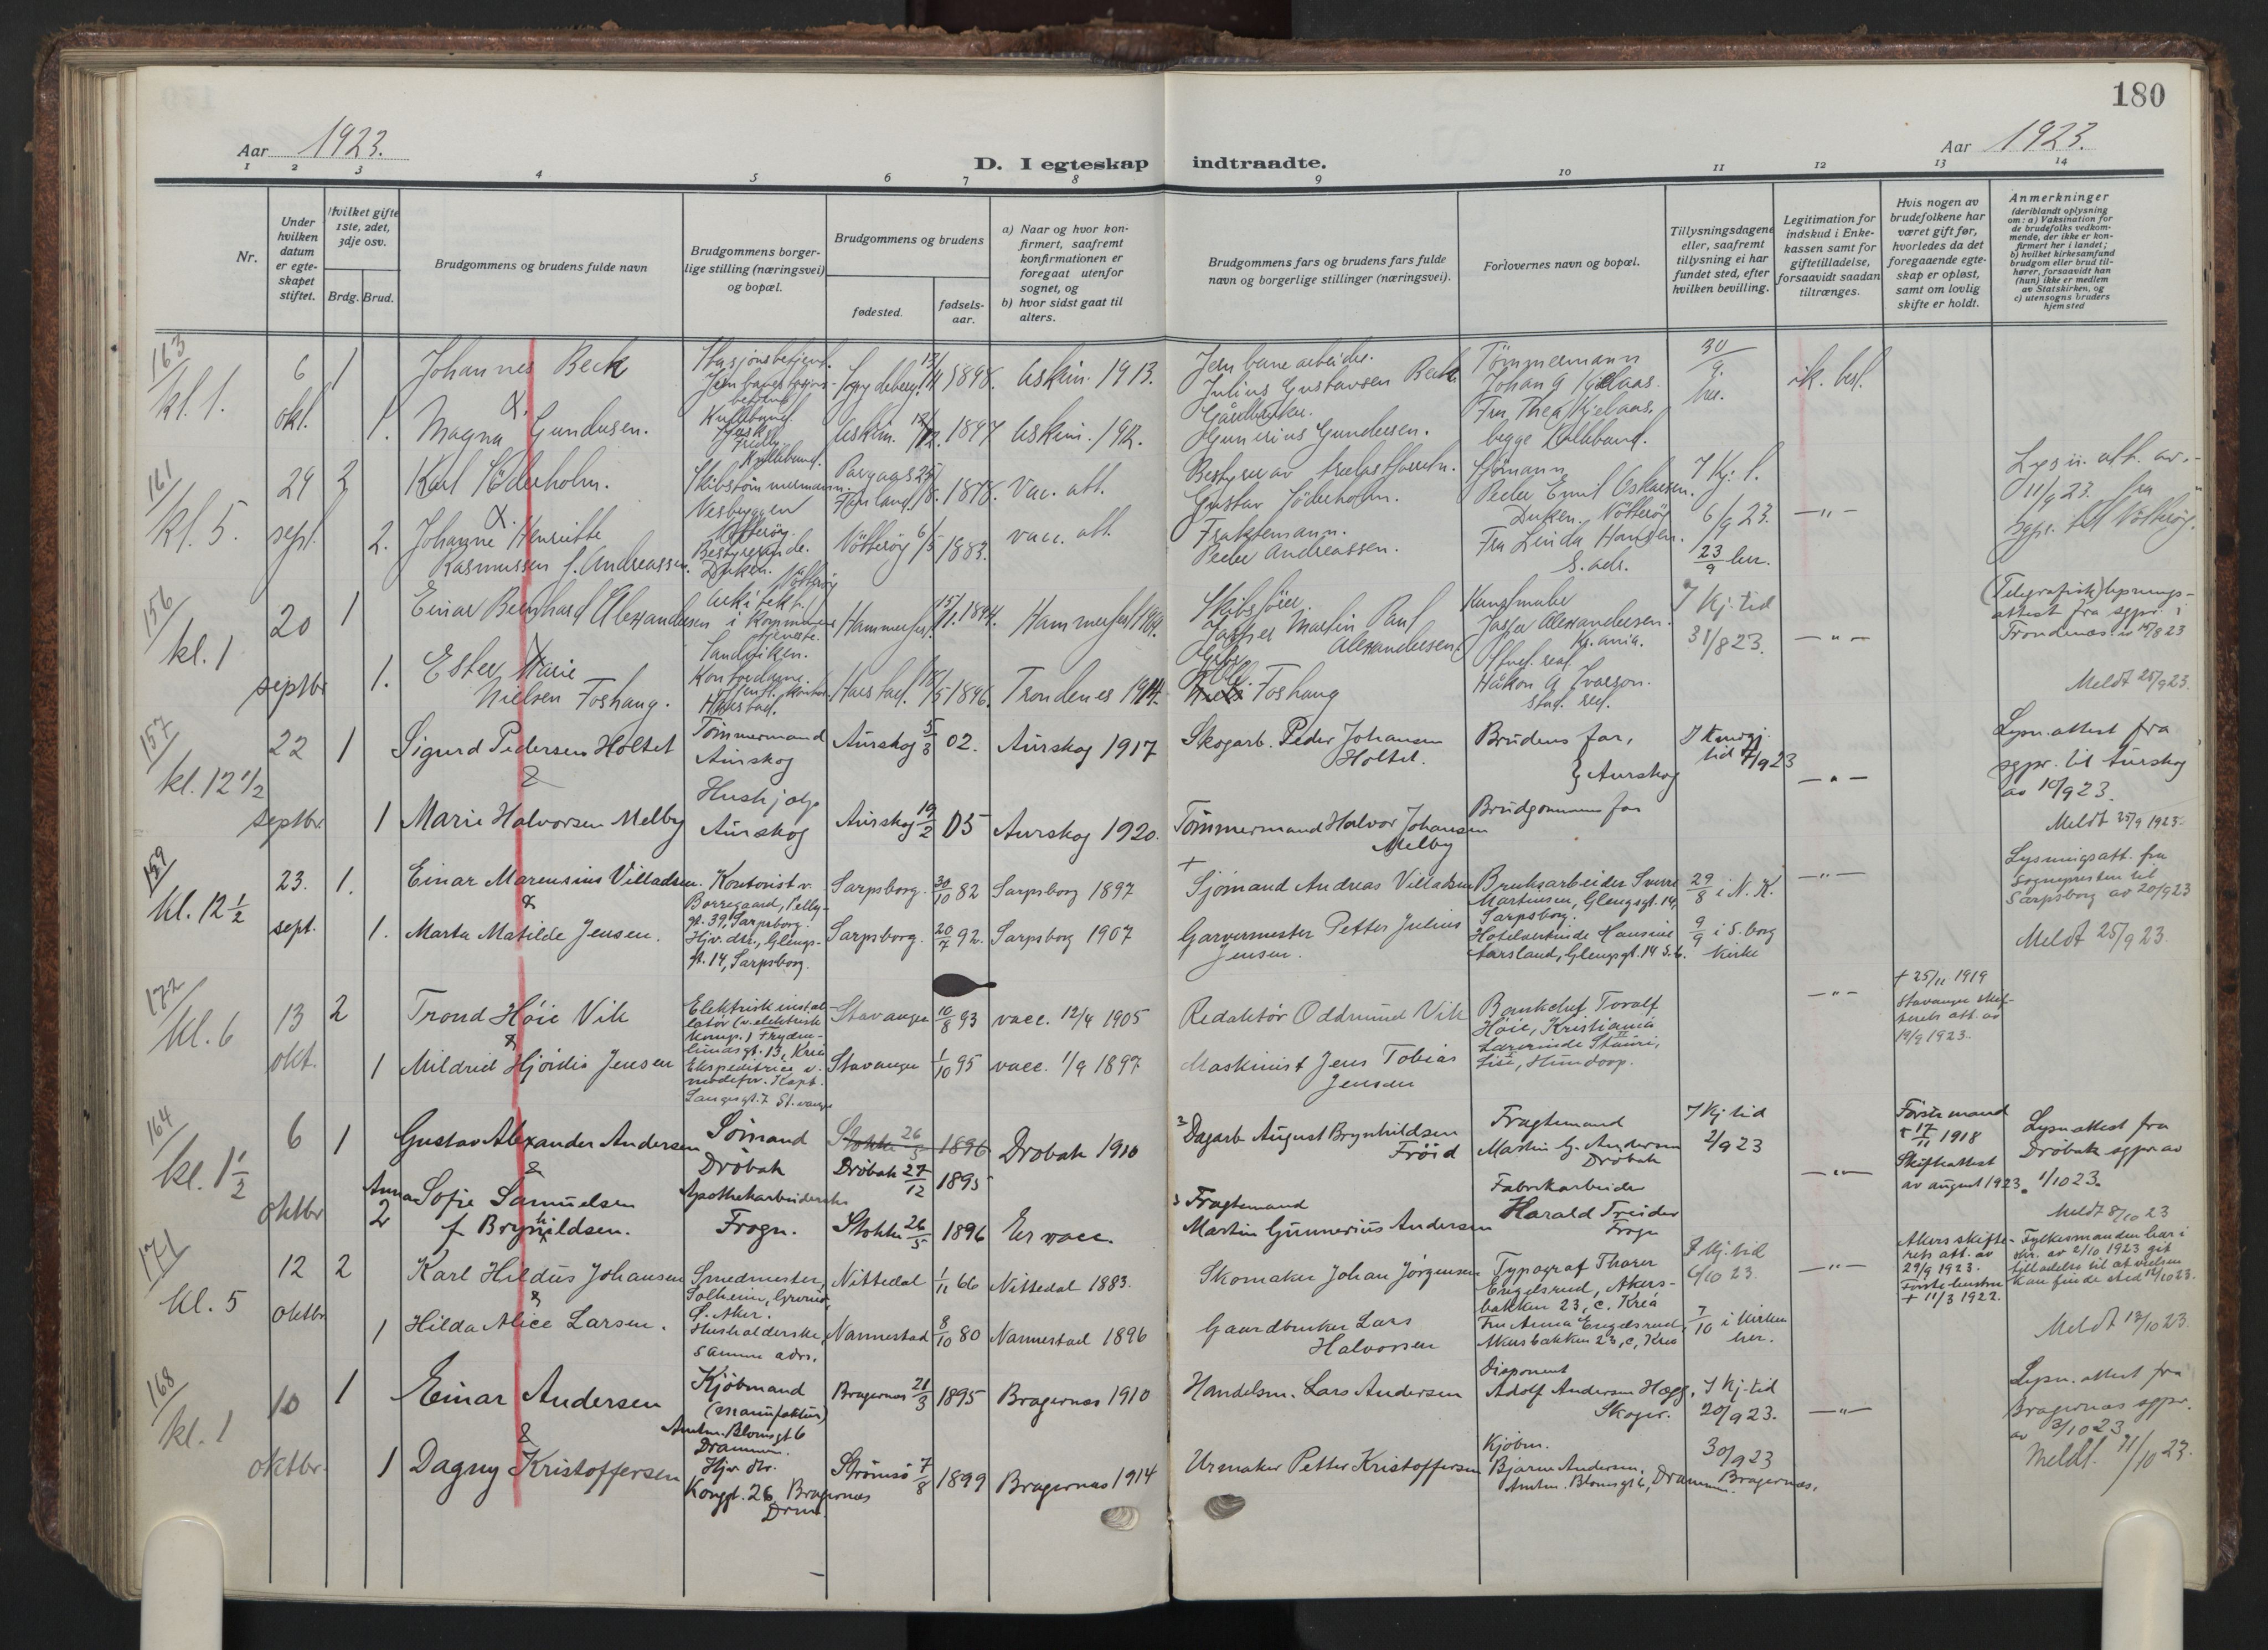 180
Aar 1923.
D. I egteskap indtraadte.
Aar 1923.
1 2 3 4 5 6 7 8 9 10 11 12 13 14
Nr.
Under hvilken datum er egte- skapet stiftet.
Hvilket gifte 1ste, 2det, 3dje osv.
Brdg. Brud.
Brudgommens og brudens fulde navn
Brudgommens borger- lige stilling (næringsvei) og bopæl.
Brudgommens og brudens
fødested.
fødsels- aar.
a) Naar og hvor kon- firmert, saafremt konfirmationen er foregaat utenfor sognet, og
b) hvor sidst gaat til alters.
Brudgommens fars og brudens fars fulde navn og borgerlige stillinger (næringsvei).
Forlovernes navn og bopæl.
Tillysningsdagene eller, saafremt tillysning ei har fundet sted, efter hvilken bevilling.
Legitimation for indskud i Enke- kassen samt for giftetilladelse, forsaavidt saadan tiltrænges.
Hvis nogen av brudefolkene har været gift før, hvorledes da det foregaaende egte- skap er opløst, samt om lovlig skifte er holdt.
Anmerkninger
(deriblandt oplysning om: a) Vaksination for de brudefolks vedkom- mende, der ikke er kon- firmert her i landet; b) hvilket kirkesamfund brudgom eller brud til- hører, forsaavidt han (hun) ikke er medlem av Statskirken, og c) utensogns bruders hjemsted
163
kl. 1.
6 okt.
1
Johannes Beck
&
1. Magna Gundersen.
Kullebund.
1898. Askim 1913.
Askim. 1897 Askim. 1912.
Jernbanearbeider.
Julius Gustavsen Beck.
Gårdbruker.
Gundersen.
Tömmermann
Johan G Kjelaas.
Fru Thea Kjelaas.
begge Kullebund.
30/9. her.
161
kl. 5.
29 sept.
2
Karl Söderholm.
&
2. Johanne Henriette
Rasmussen f. Andreassen.
Skibstömmermann.
Nötterøy.
Bestyrerinde.
1878. Vac. att.
Nötterøy 6/5 1883. vacc. att.
Gustav Söderholm.
Fraktemann.
Peder Andreassen.
Sjömann
Peder Emil Oskarsen.
Duken. Nötterøy
Fru Linda Hansen.
S. ads.
I Kj. t.
6/9 23.
23/9 her.
— " —
11/9 23. fra
sgpr. til Nötterøy.
156
kl. 1
20 septbr
1
Einar Bernhard Alexandersen
&
1. Ester Marie
Nielsen Foshaug.
Arkitekt
Sandviken.
Kontordame.
Harstad.
Hammerfest 15/1. 1894. Hammerfest 1909.
Harstad. 18/5 1896. Trondenes 1914.
Skibsförer
Jasper Martin Paul
Alexandersen
Foshaug
Kunstmaler
Jasper Alexandersen.
Kr.ania.
Håkon A Ivarson.
stud. real.
I Kj. tid
31/8 23.
— " —
(Telegrafisk) lysnings-
attest fra sgpr. i
Trondenes
Meldt 25/9 23.
157
kl. 12 1/2
22 septbr.
1
Sigurd Pedersen Holtet
&
1 Marie Halvorsen Melby
Tömmermand
Aurskog
Hushjelp
Aurskog
Aurskog 5/8 02. Aurskog 1917
Aurskog 19/2 05 Aurskog 1920.
Skogarb. Peder Johansen
Holtet.
Tömmermand Halvor Johansen
Melby
Brudens far,
Aurskog
Brudgommens far
— " —
Lysn. attest fra
sgpr. til Aurskog
av 10/9 23.
Meldt 25/9 1923.
159
kl. 12 1/2
23. sept.
1.
Einar Marensius Villadsen.
&
1. Marta Matilde Jensen.
Kontorist v.
Borregaard, Pelly-
gt. 39, Sarpsborg.
Hjv. dtr., Glengs-
gt. 14, Sarpsborg.
Sarpsborg. 30/10 82 Sarpsborg 1897
Sarpsborg. 20/7 92. Sarpsborg 1907
+
Sjömand Andreas Villadsen
Garvermester Petter Julius
Jensen.
Bruksarbeider Sverre
Martinsen, Glengsgt. 14,
Sarpsborg.
Hotelværtinde Hansine
Aarsland, Glengsgt. 14 S.b.
29/8 i N. K.
9/9 i S.borg
kirke
— " —
Lysningsatt. fra
sognepresten til
Sarpsborg av 20/9 23
Meldt 25/9 23.
172
kl. 6
13 okt.
2
Trond Höie Vik
&
1 Mildrid Hjördis Jensen
Elektrisk instal-
latör (v. elektrisk
komp.) Fryden-
lundsgt. 13, Kria
Ekspeditrice v.
modefor. Kapt.
Langesgt. 7 St.vanger
Stavanger 10/8 93 vacc. 12/4 1905
Stavanger 1/10 95 vacc. 1/9 1897
Redaktör Oddmund Vik
Maskinist Jens Tobias
Jensen
Bankchef Toralf
Höie, Kristiania
Lærerinde
Hundorp.
— " —
+ 25/11 1919
Stavanger skif-
terets att. av
19/9 1923.
164
kl. 1 1/2
6 oktbr
1
Gustav Alexander Andersen
&
2 Anna Sofie Samuelsen
f Brynhildsen.
Sömand
Dröbak
Apothekarbeiderske
Frogn.
Stokke 26/5 1896 Dröbak 1910
Dröbak 27/12 1895
Stokke 26/5 1896 Er vacc.
Dagarb. August Brynhildsen
Fröid
Fragtemand
Martin Gunnerius Andersen
Fragtemand
Martin G. Andersen
Dröbak
Fabrikarbeider
Harald Treider
Frogn
I Kj. tid
2/9 23
— " —
Förste mand
+ 17/11 1918
Skifteattest
av august 1923.
Lysn attest fra
Dröbak sgpr av
1/10 23.
Meldt 8/10 23
171
kl. 5
12 oktbr
2
Karl Hildus Johansen
&
1 Hilda Alice Larsen.
Smedmester,
Solheim, Grorud,
Ö. Aker.
Husholderske,
samme adrs.
Nittedal 1/11 66 Nittedal 1883.
Nannestad 8/10 80 Nannestad 1896
Skomaker Johan Jörgensen
Gaardbruker Lars
Halvorsen
Typograf Thorer
Engelsrud, Akers-
bakken 23, c. Kria
Fru Anna Engelsrud,
Akersbakken 23, c, Kria
I Kj. tid
6/10 23.
7/10 i kirken
her.
— " —
Akers skifte-
rets att. av
29/9 1923.
Förste hustru
+ 11/3 1922.
Fylkesmanden har i
skr. av 2/10 1923 git
tilladelse til at vielsen
kan finde sted 12/10 23.
Meldt 13/10 23.
168
kl. 1
10 oktbr.
1
Einar Andersen
&
1 Dagny Kristoffersen
Kjöbmand
(manufaktur)
Amtm. Blomsgt 6
Drammen.
Hjv. dtr.
Kongsgt. 26 Bragernæs
Drm.
Bragernæs 21/3 1895 Bragernæs 1910
Strömsö 7/8 1899 Bragernæs 1914
Handelsm. Lars Andersen
Urmaker Petter Kristoffersen
Disponent
Adolf Andersen Hægg,
Skoger.
Kjöbm.
Bjarne Andersen,
Amtm. Blomsgt 6, Drammen. Bragernæs.
I Kj. tid
20/9 23.
30/9 23
— " —
Lysn. attest fra
Bragernæs sgpr.
av 3/10 23
Meldt. 11/10 23.